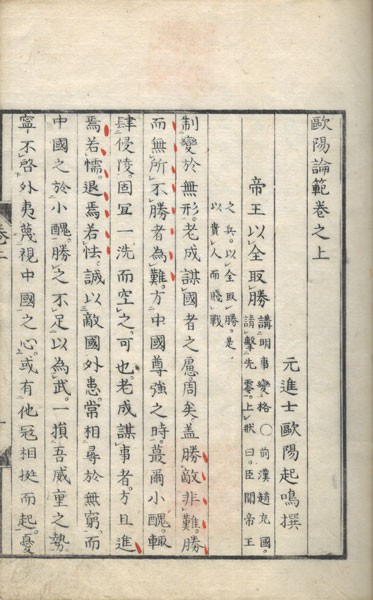 歐陽論範卷之上
元進士歐陽起鳴撰
帝王以全取勝
講明事變格〇前漢趙充國。
請擊先零。上狀曰。臣聞帝王
之兵。以全取勝。是
以貴人而賤戰
制變於無形。老成謀國者之慮周矣。盖勝敵非難。勝
而無所不勝者為難。方中國尊強之時。蕞爾小醜。輒
肆侵陵。固宜一洗而空之。可也。老成謀事者。方且進
焉若懦。退焉若怯。誠以敵國外患。常相尋於無窮。而
中國之於小醜。勝之不足以為武。一損吾威重之勢
寧不啓外夷蔑視中國之心。或有他冦相挺而起。憂